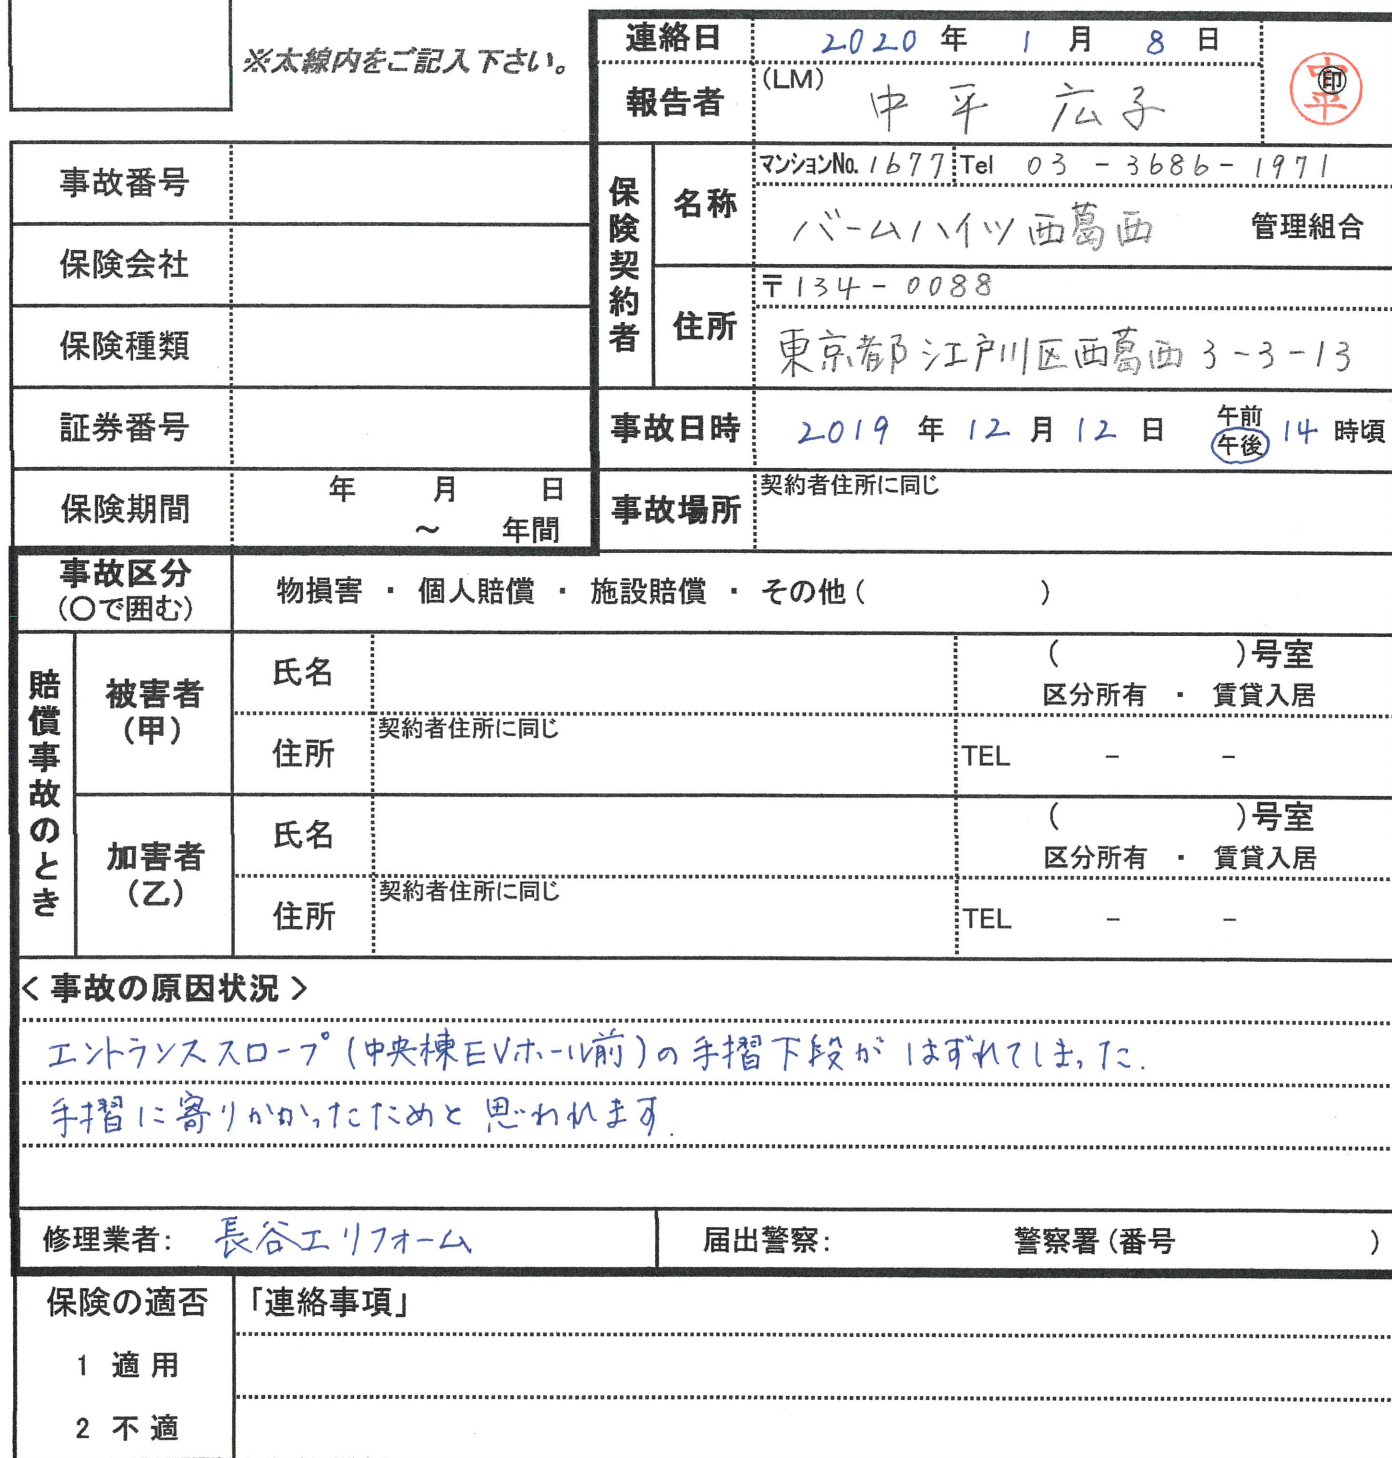 ※太線内をご記入下さい。
連絡日 2020 年 1 月 8 日
報告者 (LM) 中平 広子 ㊞ 中平
事故番号
保険会社
保険種類
証券番号
保険期間 年 月 日
～ 年間
保険契約者
名称 マンションNo. 1677 Tel 03-3686-1971
バームハイツ西葛西 管理組合
住所 〒134-0088
東京都江戸川区西葛西3-3-13
事故日時 2019 年 12 月 12 日 午前 午後 14 時頃
事故場所 契約者住所に同じ
事故区分
(〇で囲む)
物損害 ・ 個人賠償 ・ 施設賠償 ・ その他 ( )
賠償事故のとき
被害者
(甲)
氏名 ( )号室
区分所有 ・ 賃貸入居
住所 契約者住所に同じ TEL - -
加害者
(乙)
氏名 ( )号室
区分所有 ・ 賃貸入居
住所 契約者住所に同じ TEL - -
< 事故の原因状況 >
エントランススロープ(中央棟EVホール前)の手摺下段がはずれてしまった.
手摺に寄りかかったためと思われます.
修理業者: 長谷工リフォーム 届出警察: 警察署(番号 )
保険の適否 「連絡事項」
1 適用
2 不適